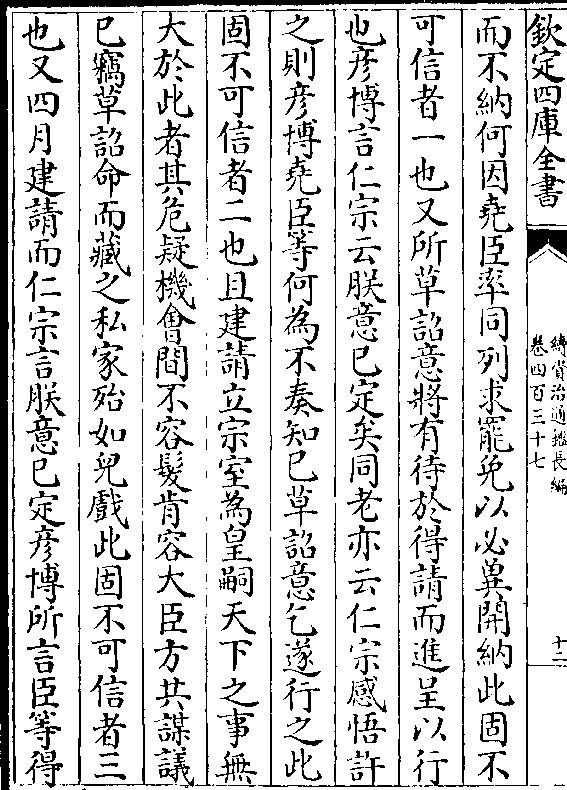 欽定四庫全書
續資治通鑑長編
卷四百三十七
十二
而不納何因堯臣率同列求罷免以必冀開納此固不
可信者一也又所草詔意將有待於得請而進呈以行
也彦博言仁宗云朕意已定矣同老亦云仁宗感悟許
之則彦博堯臣等何為不奏知已草詔意乞遂行之此
固不可信者二也且建請立宗室為皇嗣天下之事無
大於此者其危疑機會間不容髮肯容大臣方共謀議
已竊草詔命而藏之私家殆如兒戲此固不可信者三
也又四月建請而仁宗言朕意已定彦博所言臣等得